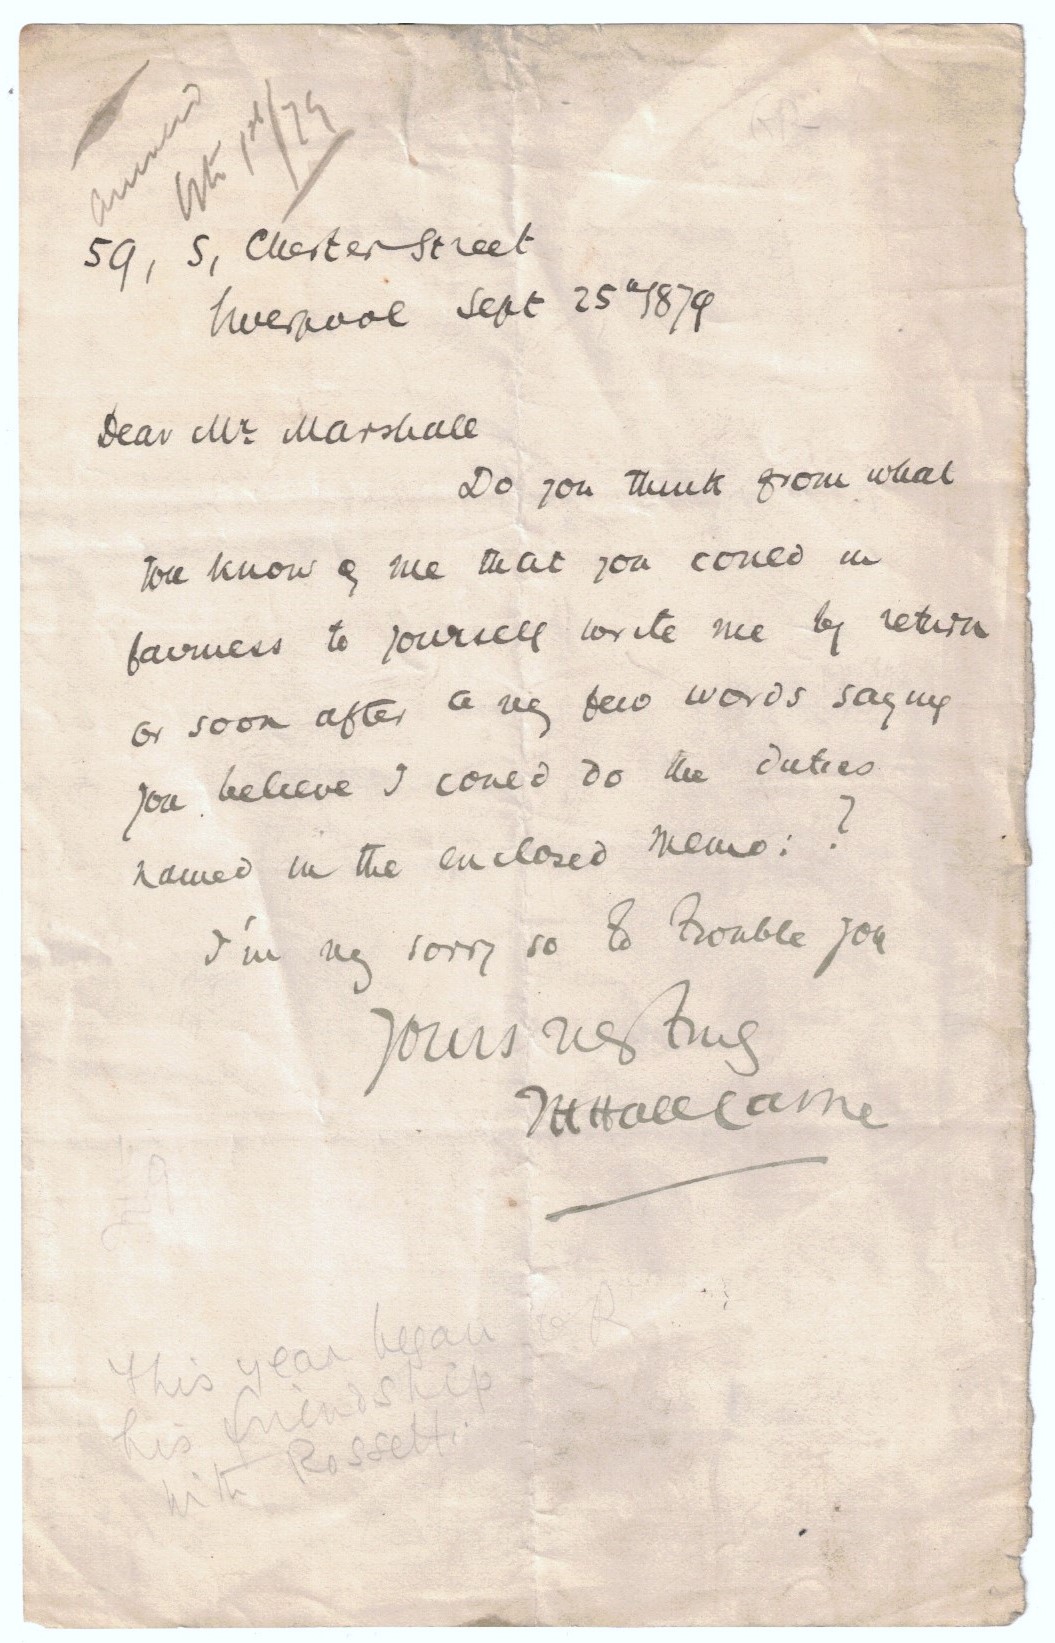 answered
Oct 1st/79
59, S, Chester Street
Liverpool Sept 25th 1879
Dear Mr Marshall
Do you think from what
you know of me that you could in
fairness to yourself write me by return
or soon after a vy few words saying
you believe I could do the duties
named in the enclosed memo: ?
I'm vy sorry so to trouble you
Yours vy truly
T H Hall Caine
This year began
his friendship
with Rossetti